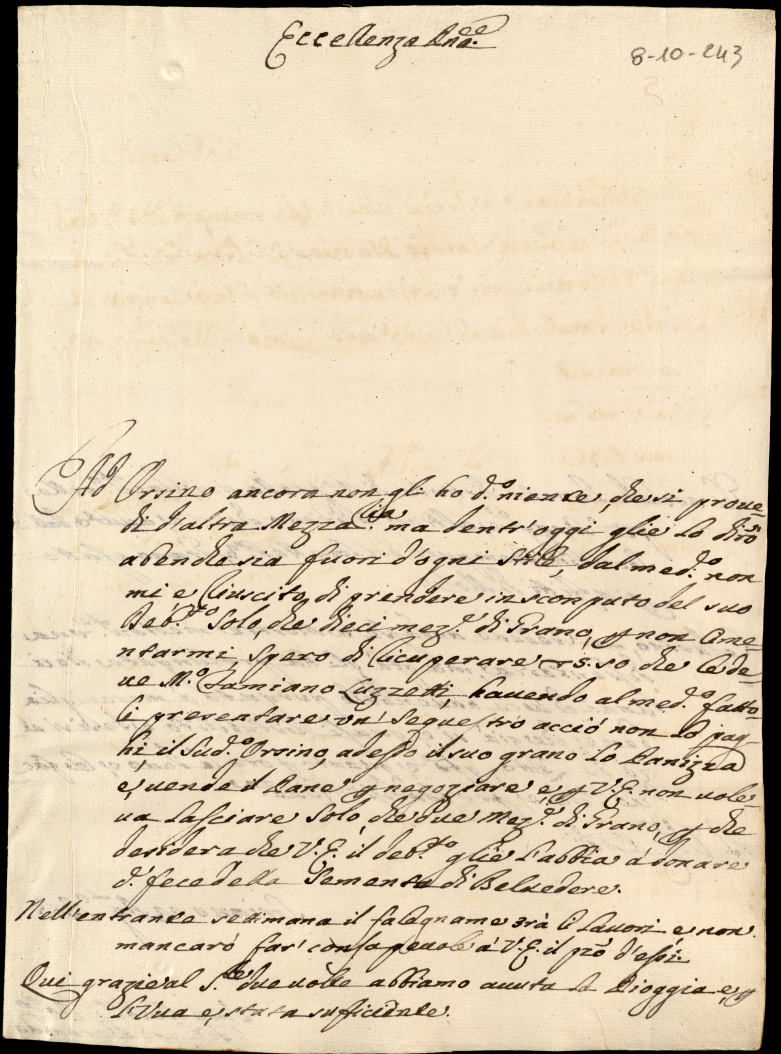 Eccellenza Pna.
8-10-243
Ad Orsino ancora non gli ho d.º niente, che si prove-
di d'altra Mezza ma dentr'oggi glie lo dirò
abenche sia fuori d'ogni stile, dal med.º non
mi, è riuscito, di prendere in scomputo del suo
Deb.to solo, che dieci mez.e di Grano, p non Cime-
ntarmi, spero di ricuperare so che le de-
ve M.º Damiano Luzzetti, havendo al med.º fatto-
li presentare un' sequestro acciò non lo pag-
hi, il Sud.º Orsino, adesso il suo grano lo Panizza
e, vende il Pane p negoziare e, p V.E. non vole-
va lasciare solo, che due Mez.e di Grano, p che
desidera che V.E. il deb.to glie l'abbia à donare
d.ª fece della Sementa di Belvedere.
Nell'entrante sedimana il falegname i lavori, e non
mancarò far' consapevole à V.E. il pzo d'essi.
Qui grazie al S.re due volte abbiamo avuta la Pioggia e, p
l'Uva e, stata sufficiente.